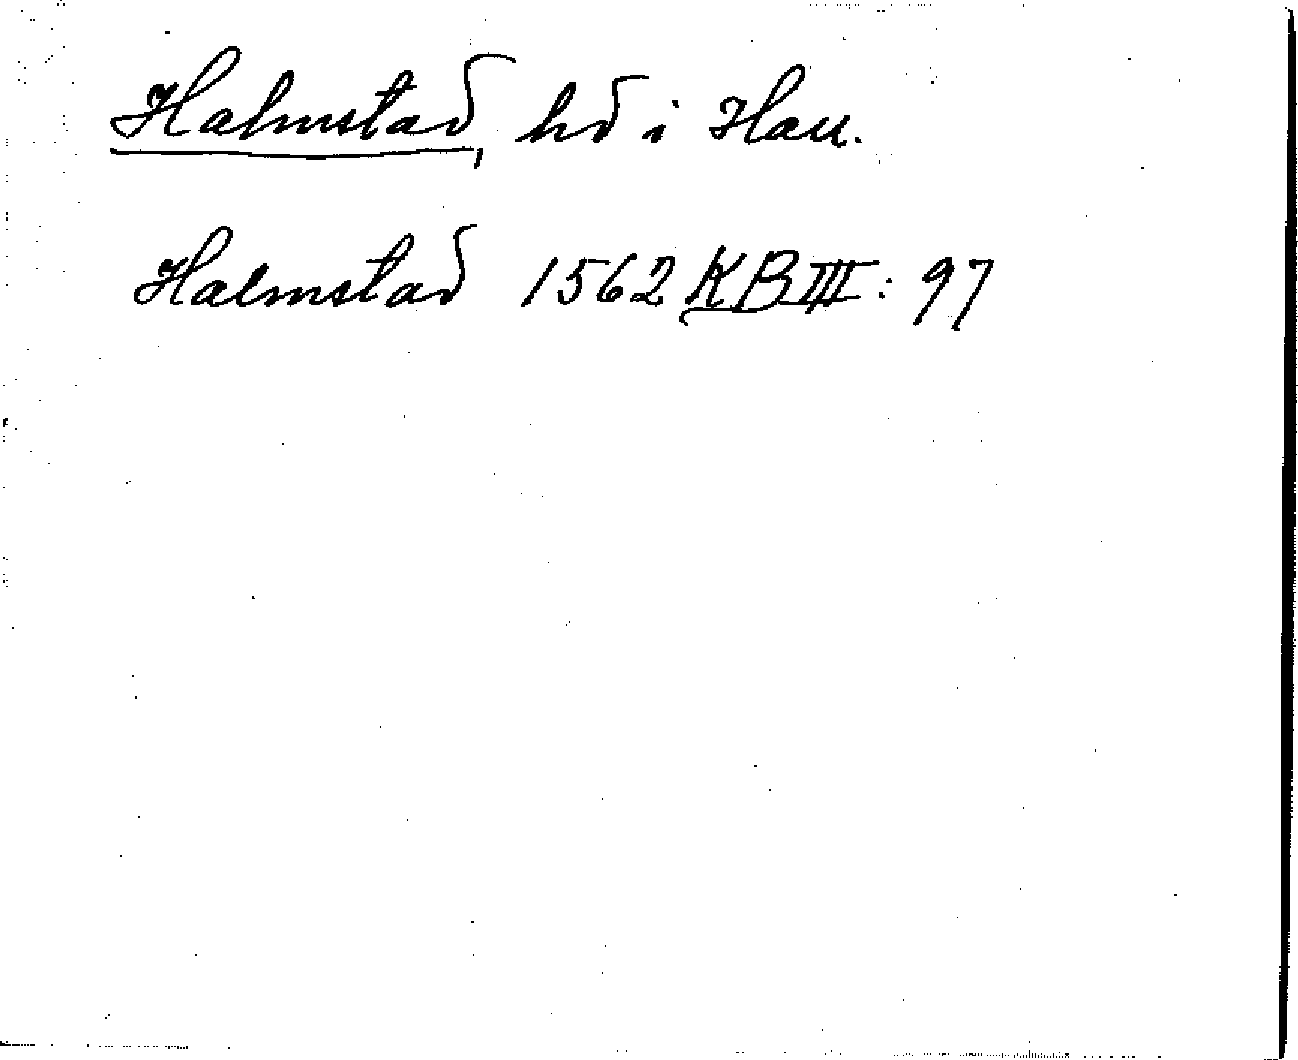 Halmstad, hd i Hall.
Halmstad 1562 KB III: 97